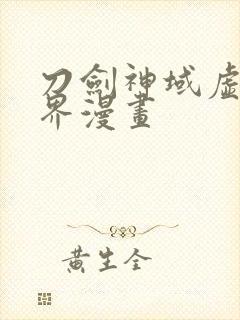 刀劍神域虛
界漫畫
黃生全